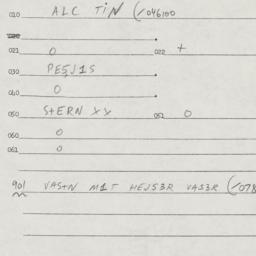 010 ALC TiN (/046100
021 0 022 +
030 PE5J1S
040 0
050 S+ERN XX 051 0
060 0
061 0
901 VAS+N M1T HEJS3R VAS3R (/078